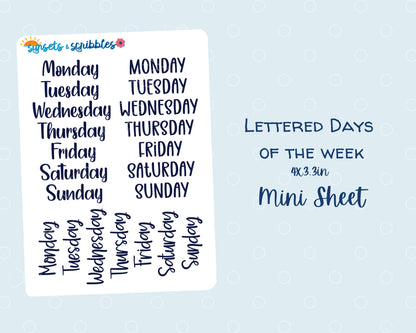 sunsets & scribbles
Monday MONDAY
Tuesday TUESDAY
Wednesday WEDNESDAY
Thursday THURSDAY
Friday FRiDAY
Saturday SATURDAY
Sunday SUNDAY
Monday
Tuesday
Wednesday
Thursday
Friday
Saturday
Sunday
Lettered Days
of the week
4x.3.3in
Mini Sheet